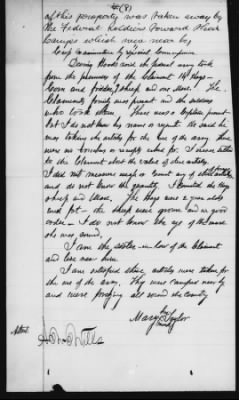 (8)
of this property was taken away by
the Federal Soldiers toward their
Camps which was near by
Cross examination by special Commissioner
During Hoods raid the Federal army took
from the premises of the Claimant 14 Hogs -
Corn and fodder, Sheep and one Mare. The
Claimants family was present and the soldiers
who took them. There was a present
but I do not know his name or regiment. He said he
was taking the articles for the use of the army there
were no vouchers or receipts called for. I never talked
to the Claimant about the value of these articles.
I did not measure weigh or count any of these articles
and do not know the quantity. I counted the Hogs
sheep and Mare. The Hogs were 2 years olds
and fat - the sheep were grown and in good
order - I do not know the age of the mare
she was sound.
I am the sister in law of the Claimant
and live near him.
I am satisfied these articles were taken for
the use of the army. They were camped near by
and were foraging all around the country
her
Mary Taylor
mark
Attest